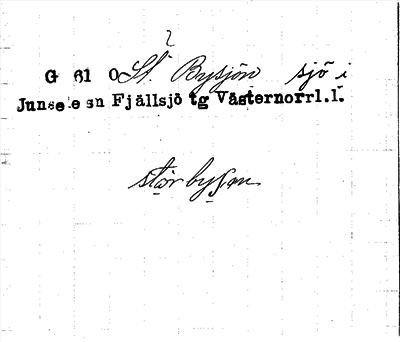 G 61 O St. Bysjön sjö i
Junsele sn Fjällsjö tg Västernorrl.l.
storbysjɷn